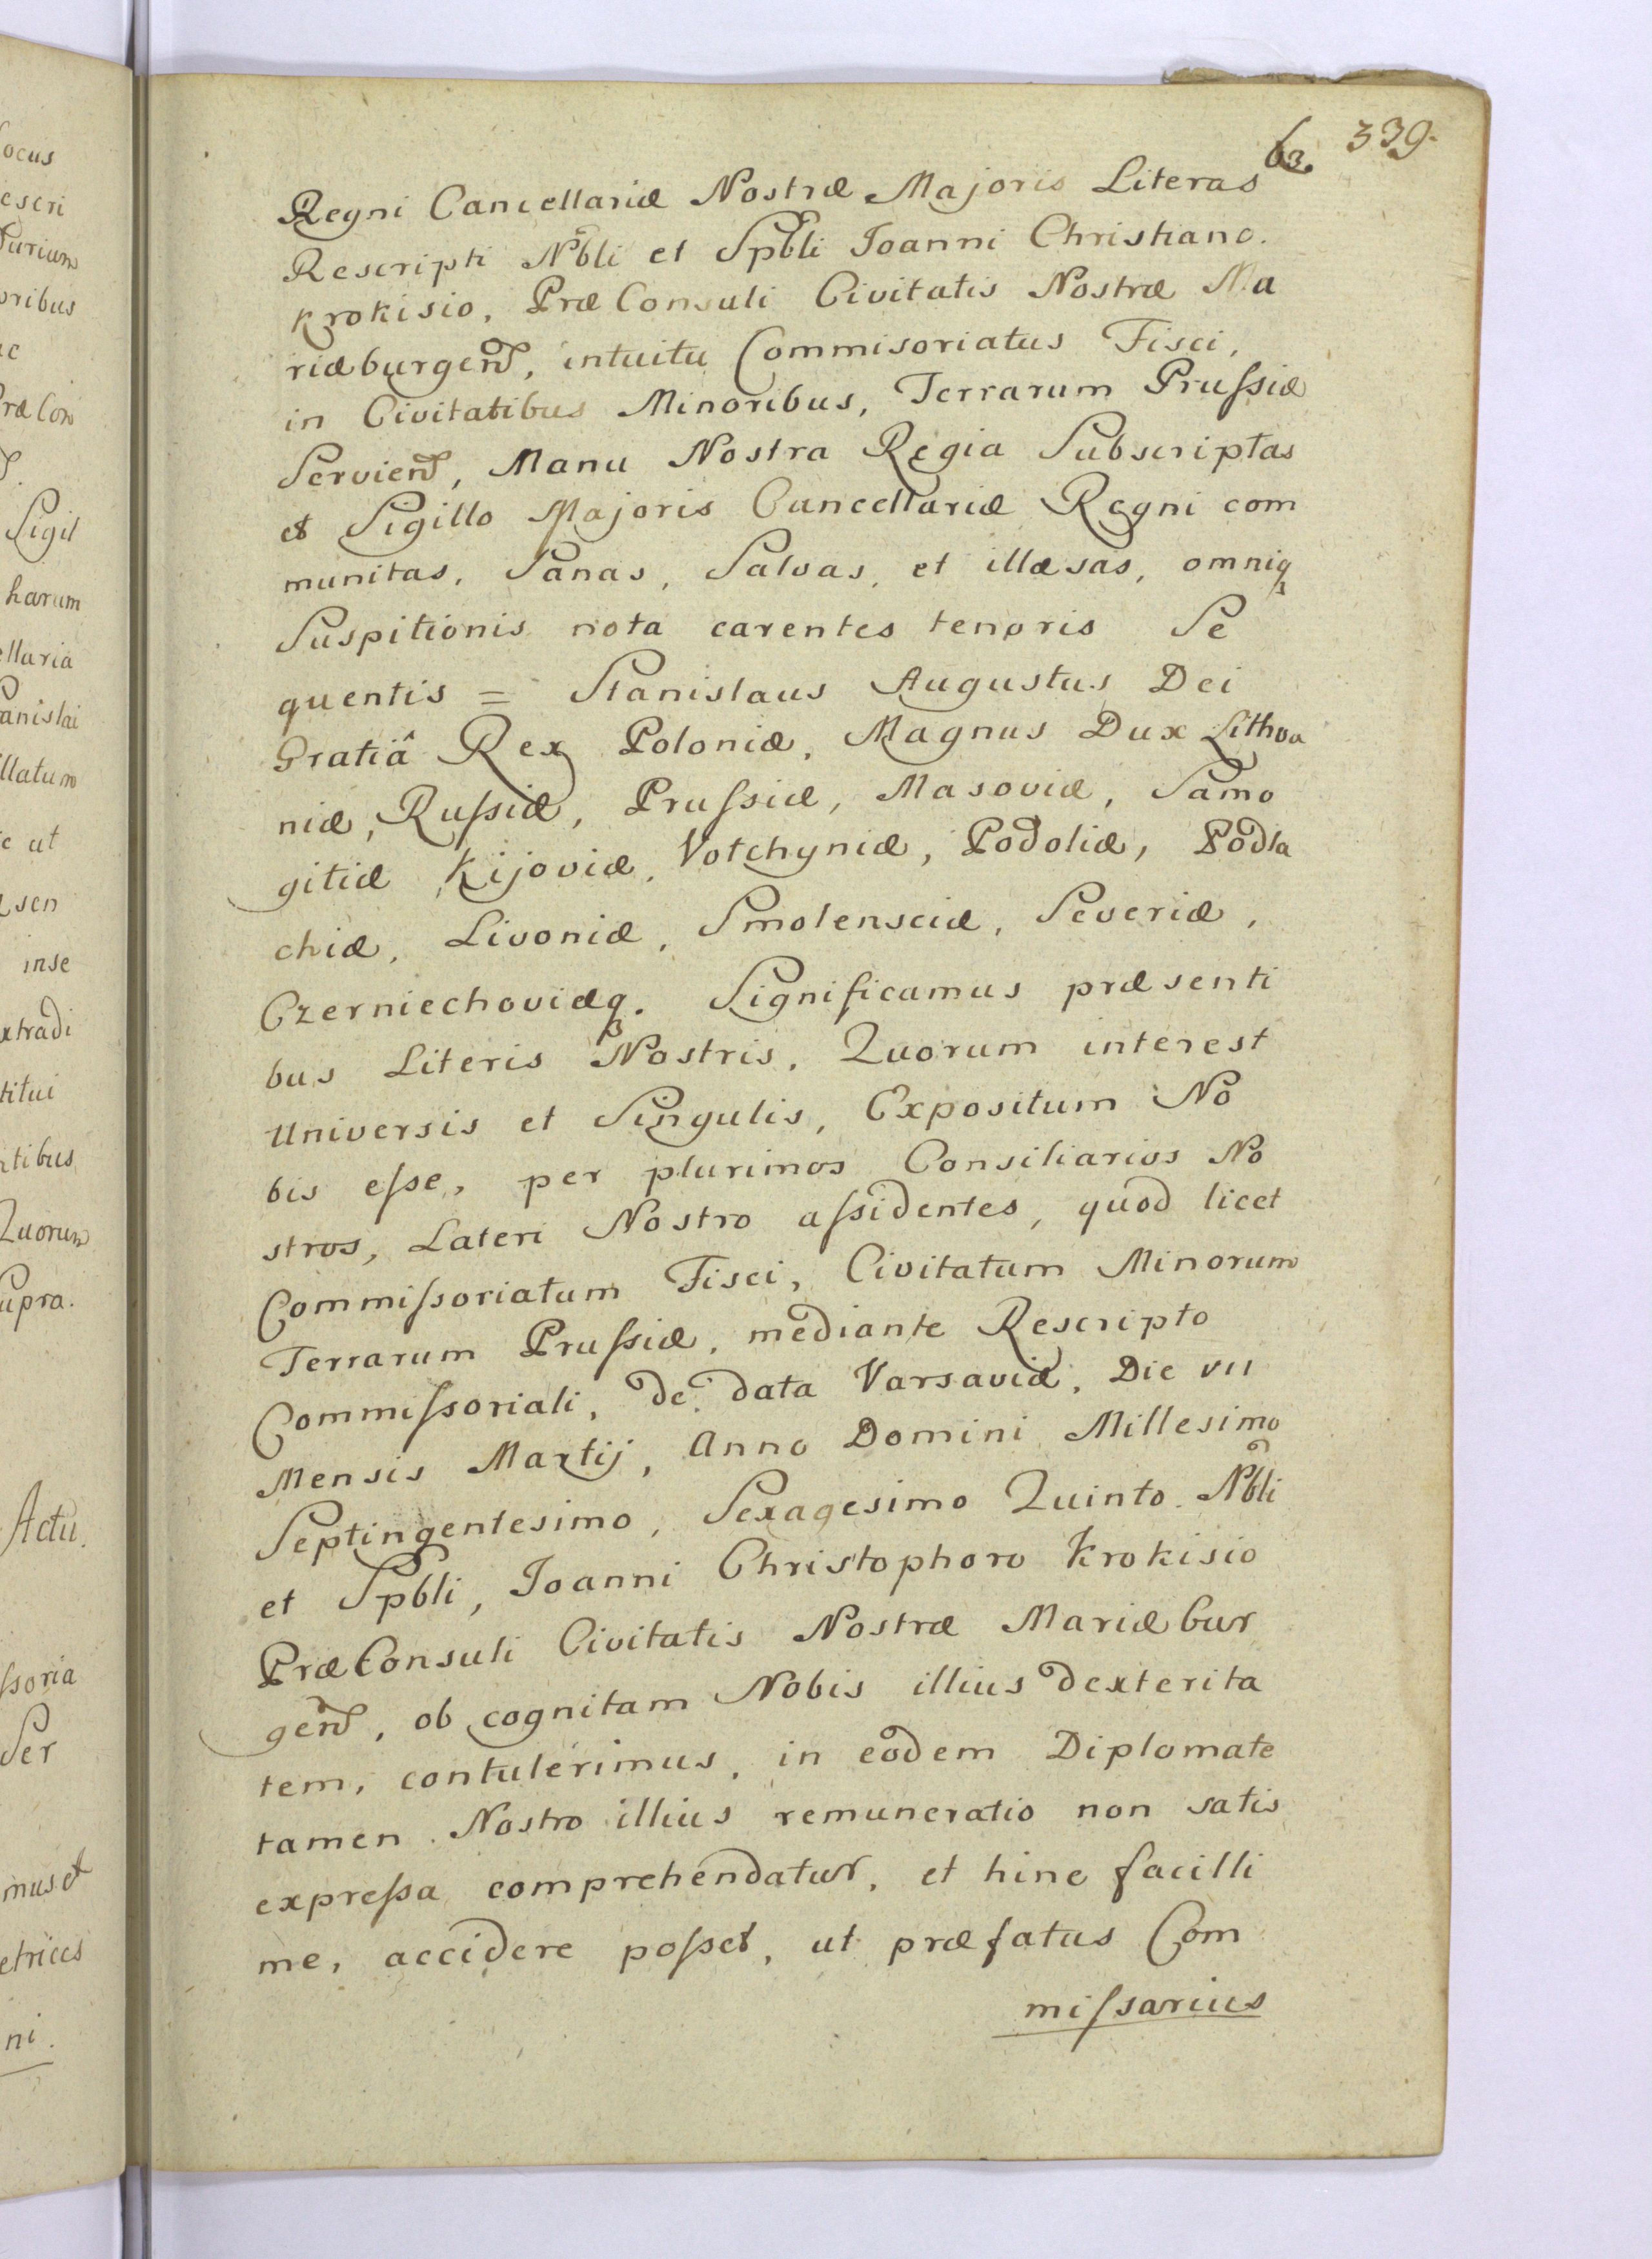 63. 339.
Regni Cancellariæ Nostræ Majoris Literas
Rescripti Nbli et Spbli Joanni Christiano.
Krokisio, PræConsuli Civitatis Nostræ Ma
riæburgen, intuitu Commisoriatus Fisci,
in Civitatibus Minoribus, Terrarum Pruſsiæ
Servien, Manu Nostra Regia Subscriptas
et Sigillo Majoris Cancellariæ Regni com
munitas, Sanas, Salvas, et illæsas, omniq
Suspitionis nota carentes tenoris Se
quentis = Stanislaus Augustus Dei
Gratiâ Rex Poloniæ, Magnus Dux Lithva
niæ, Ruſsiæ, Pruſsiæ, Masoviæ, Samo
gitiæ, Kijoviæ, Volchyniæ, Podoliæ, Podla
chiæ, Livoniæ, Smolensciæ, Severiæ,
Czerniechoviæq. Significamus præsenti
bus Literis Nostris, Quorum interest
Universis et Singulis, Expositum No
bis eſse, per plurimos Consiliarios No
stros, Lateri Nostro aſsidentes, quod licet
Commiſsoriatum Fisci, Civitatum Minorum
Terrarum Pruſsiæ, mediante Rescripto
Commiſsoriali, de data Varsaviæ, Die VII
Mensis Martij, Anno Domini Millesimo
Septingentesimo, Sexagesimo Quinto. Nbli
et Spbli, Joanni Christophoro Krokisio
PræConsuli Civitatis Nostræ Mariæ bur
gen, ob cognitam Nobis illius dexterita
tem, contulerimus, in eodem Diplomate
tamen Nostro illius remuneratio non satis
expreſsa comprehendatur, et hinc facilli
me, accidere poſset, ut præfatus Com
miſsarius